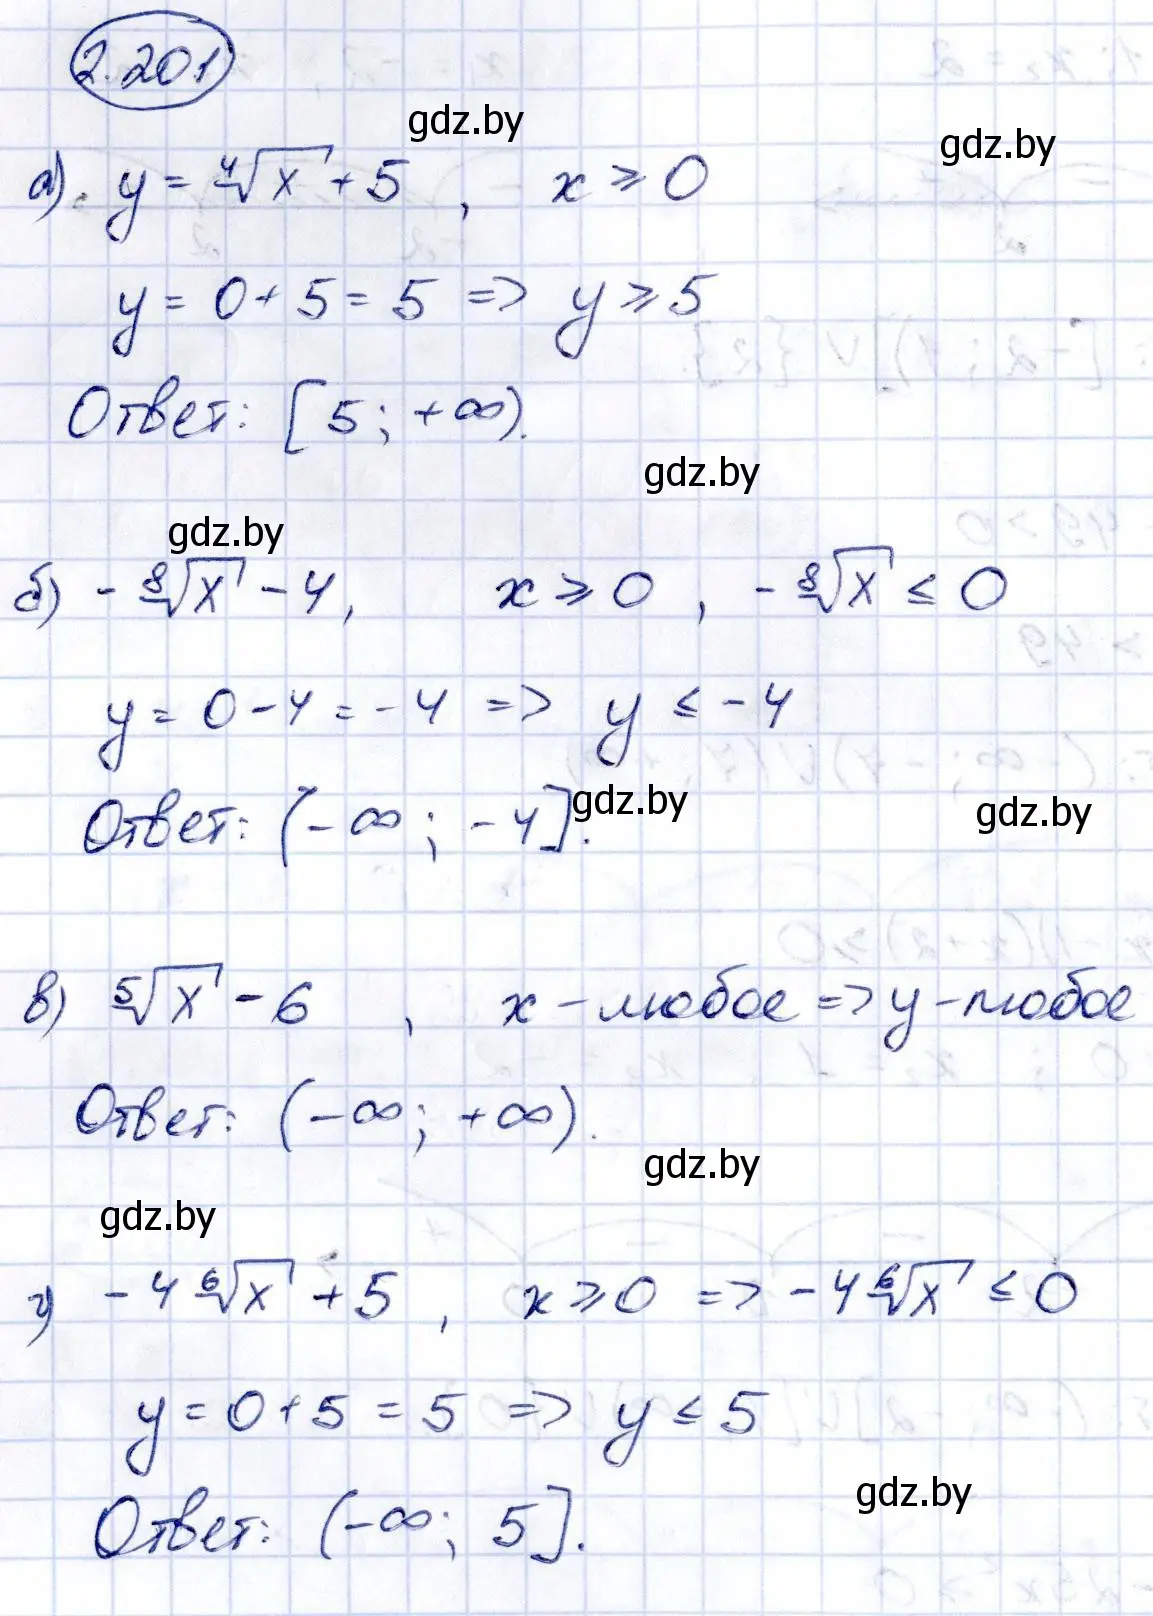 2.201
gdz.by
gdz.by
а) y = ⁴√x + 5 , x ⩾ 0
y = 0 + 5 = 5 => y ⩾ 5
Ответ: [5; +∞).
gdz.by
gdz.by
б) - ⁸√x - 4, x ⩾ 0 , - ⁸√x ≤ 0
y = 0 - 4 = - 4 => y ≤ - 4
gdz.by
gdz.by
Ответ: (-∞; -4].
в) ⁵√x - 6 , x - любое => y - любое
Ответ: (-∞; +∞).
gdz.by
gdz.by
г) - 4 ⁶√x + 5 , x ⩾ 0 => - 4 ⁶√x ≤ 0
y = 0 + 5 = 5 => y ≤ 5
gdz.by
Ответ: (-∞; 5].